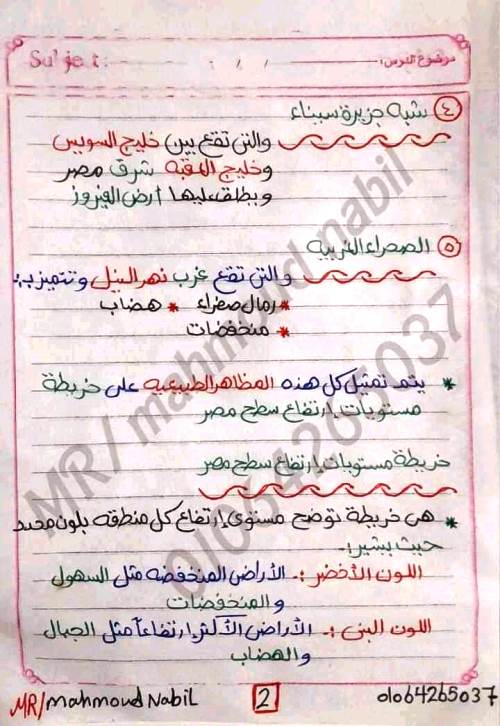 موضوع الدرس: / / Su'je t:
④ شبه جزيرة سيناء
والتى تقع بين خليج السويس
وخليج العقبة شرق مصر
ويطلق عليها أرض الفيروز
⑤ الصحراء الغربية
والتى تقع غرب نهر النيل وتتميز بـ:
* رمال صفراء * هضاب
* منخفضات
* يتم تمثيل كل هذه المظاهر الطبيعيه على خريطة
مستويات إرتفاع سطح مصر
خريطة مستويات إرتفاع سطح مصر
* هى خريطة توضح مستوى إرتفاع كل منطقه بلون محدد
حيث يشير :-
اللون الأخضر :- الأراض المنخفضه مثل السهول
والمنخفضات
اللون البنى :- الأراض الأكثر إرتفاعاً مثل الجبال
والهضاب
MR/mahmoud Nabil 2 01064265037
MR/ mahmoud nabil
01064265037